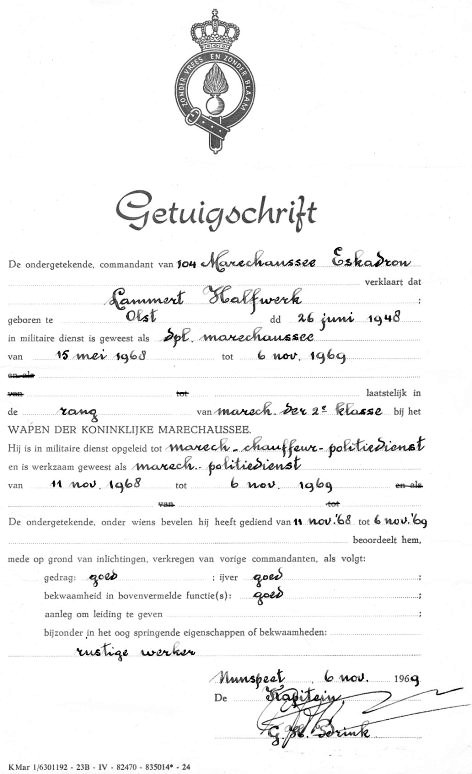 ZONDER VREES EN ZONDER BLAAM
Getuigschrift
De ondergetekende, commandant van 104 Marechaussee Eskadron
verklaart dat
Lammert Halfwerk ;
geboren te Olst dd 26 juni 1948
in militaire dienst is geweest als dpl. marechaussee
van 15 mei 1968 tot 6 nov. 1969
en als
van tot laatstelijk in
de rang van march. der 2e klasse bij het
WAPEN DER KONINKLIJKE MARECHAUSSEE.
Hij is in militaire dienst opgeleid tot marech.-chauffeur-politiedienst
en is werkzaam geweest als marech.-politiedienst
van 11 nov. 1968 tot 6 nov. 1969 en als
van tot
De ondergetekende, onder wiens bevelen hij heeft gediend van 11 nov.'68 tot 6 nov.'69
beoordeelt hem,
mede op grond van inlichtingen, verkregen van vorige commandanten, als volgt:
gedrag: goed ; ijver goed ;
bekwaamheid in bovenvermelde functie(s): goed ;
aanleg om leiding te geven ;
bijzonder in het oog springende eigenschappen of bekwaamheden:
rustige werker
Nunspeet, 6 nov. 1969
De Kapitein,
KMar 1/6301192 - 23B - IV - 82470 - 835014* - 24